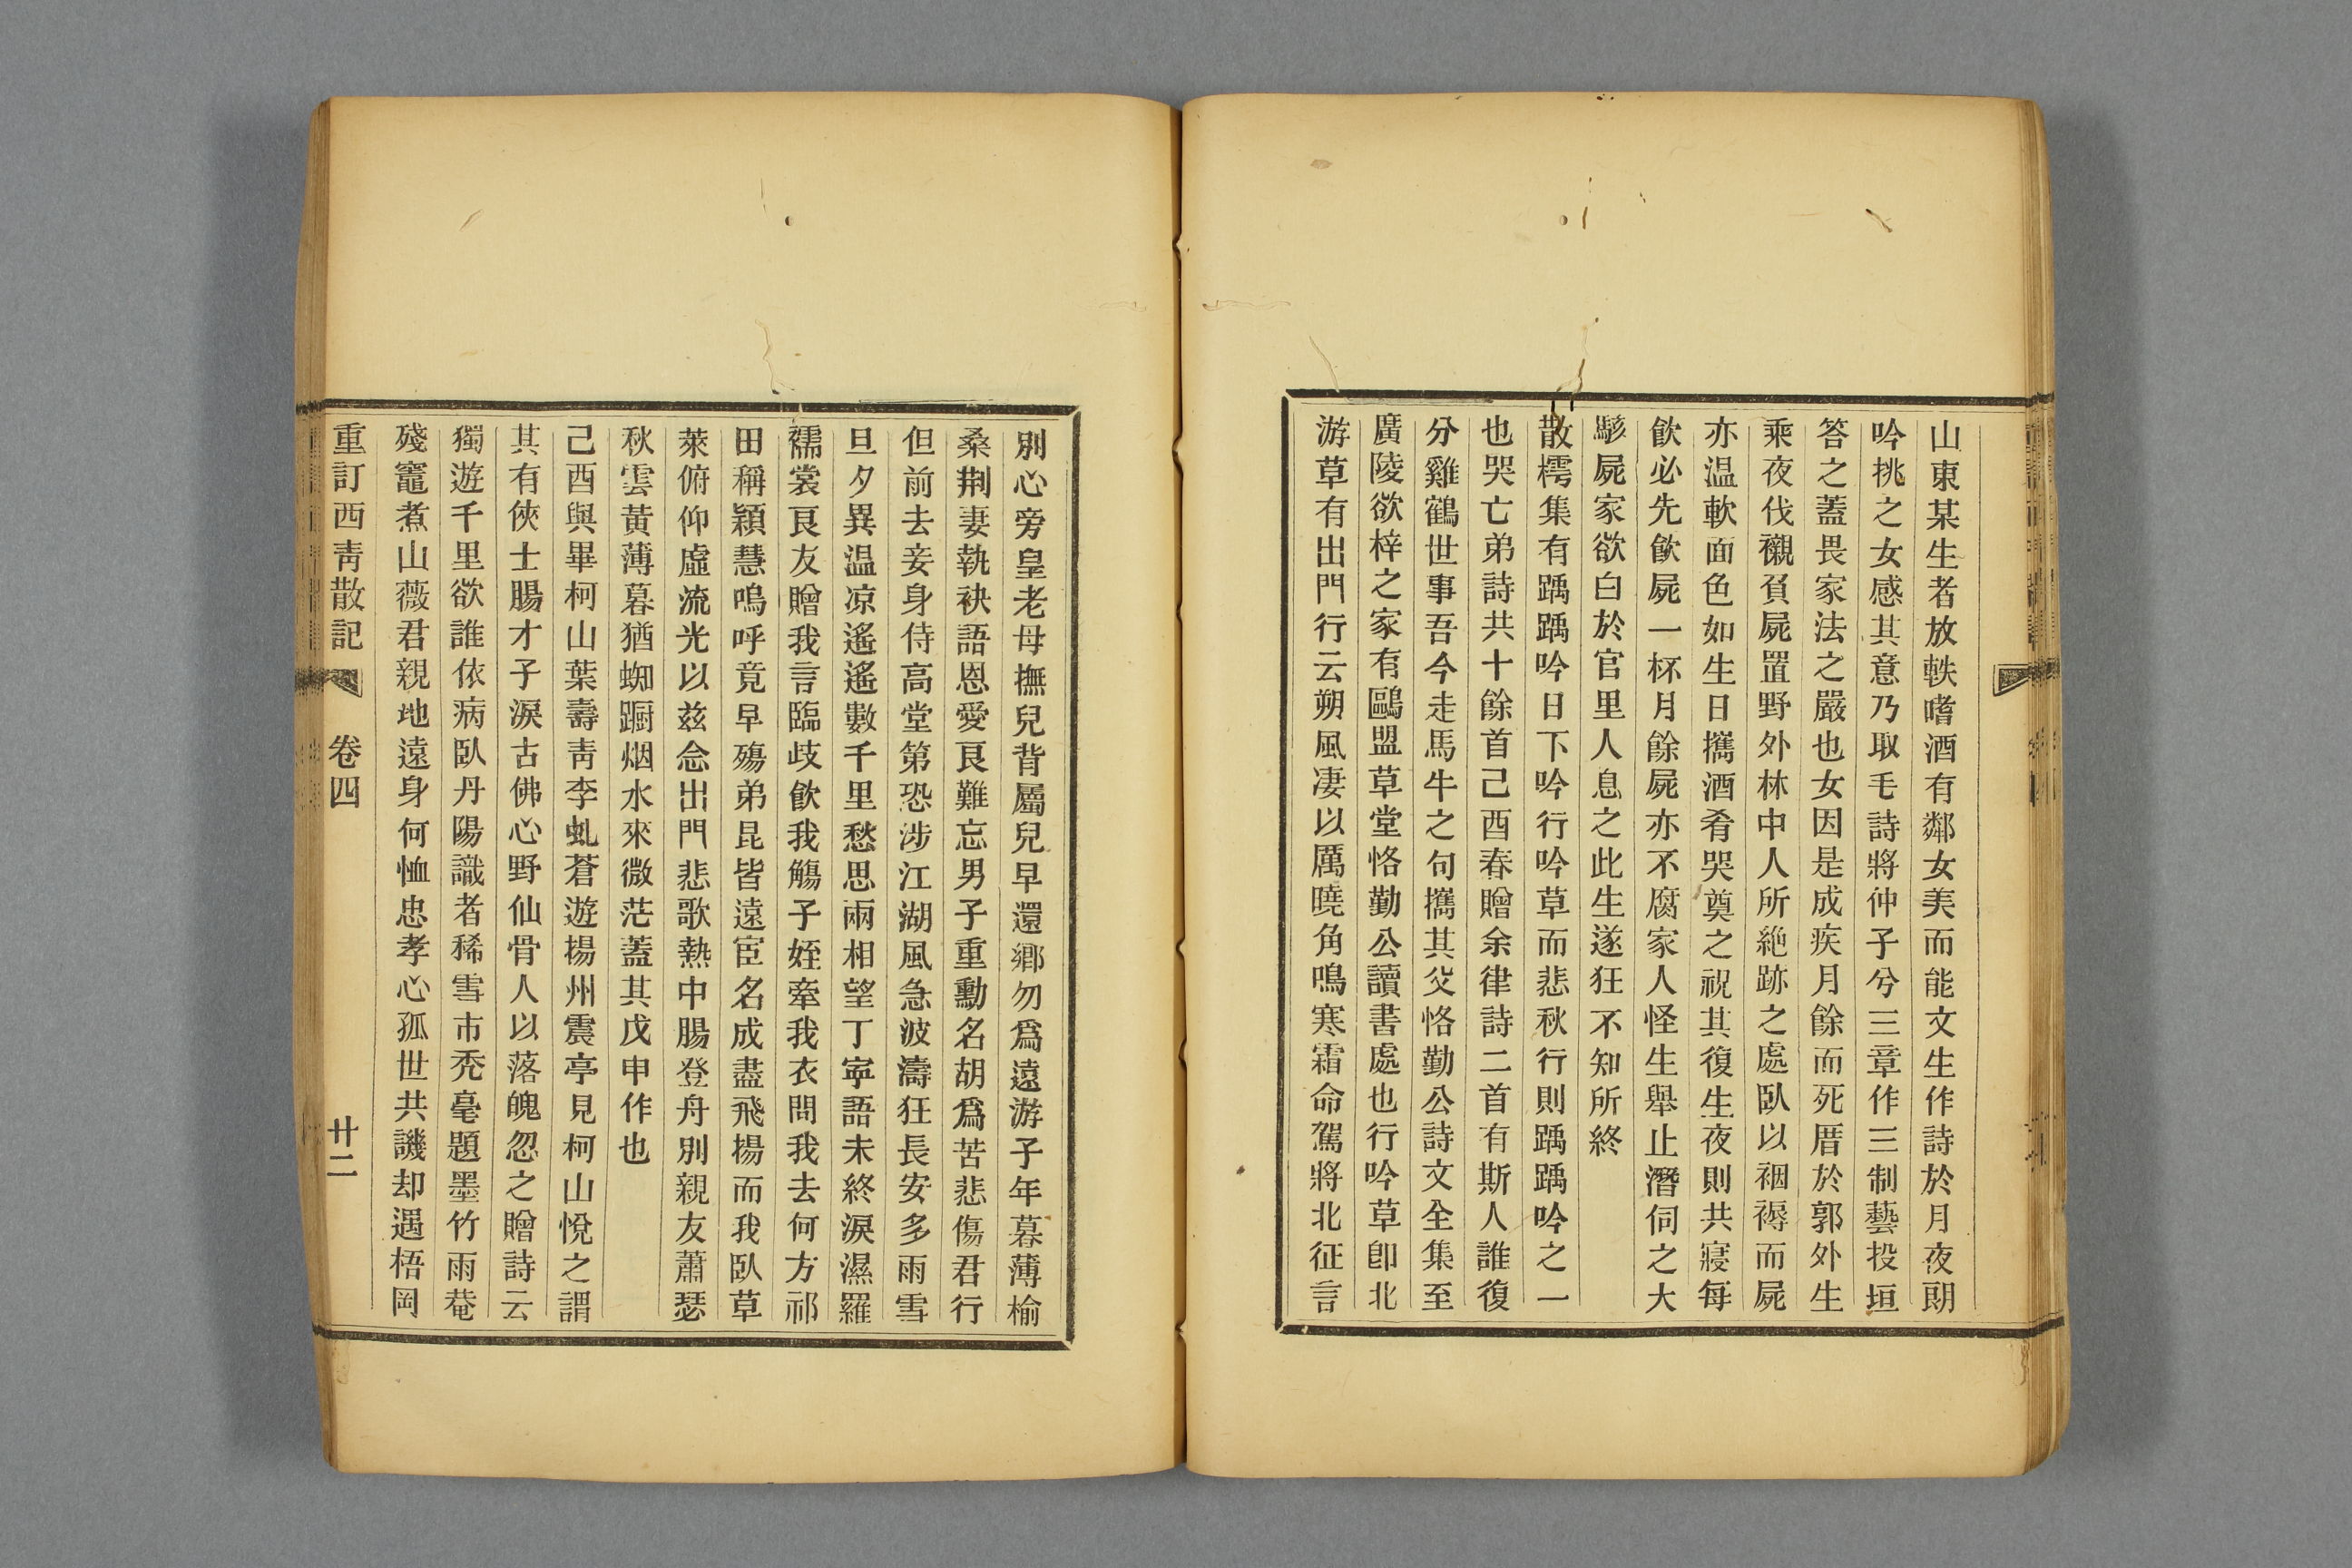 山東某生者放軼嗜酒有鄰女美而能文生作詩於月夜朗
吟挑之女感其意乃取毛詩將仲子兮三章作三制藝投垣
答之蓋畏家法之嚴也女因是成疾月餘而死厝於郭外生
乘夜伐櫬負屍置野外林中人所絶跡之處臥以裀褥而屍
亦温軟面色如生日攜酒肴哭奠之祝其復生夜則共寢每
飲必先飲屍一杯月餘屍亦不腐家人怪生舉止潛伺之大
駭屍家欲白於官里人息之此生遂狂不知所終
散樗集有踽踽吟日下吟行吟草而悲秋行則踽踽吟之一
也哭亡弟詩共十餘首己酉春贈余律詩二首有斯人誰復
分雞鶴世事吾今走馬牛之句攜其父恪勤公詩文全集至
廣陵欲梓之家有鷗盟草堂恪勤公讀書處也行吟草卽北
游草有出門行云朔風凄以厲曉角鳴寒霜命駕將北征言
別心旁皇老母撫兒背屬兒早還鄉勿爲遠游子年暮薄榆
桑荆妻執袂語恩愛良難忘男子重勳名胡爲苦悲傷君行
但前去妾身侍高堂第恐涉江湖風急波濤狂長安多雨雪
旦夕異温凉遙遙數千里愁思兩相望丁寧語未終淚濕羅
襦裳良友贈我言臨歧飲我觴子姪牽我衣問我去何方祁
田稱穎慧嗚呼竟早殤弟昆皆遠宦名成盡飛揚而我臥草
萊俯仰虛流光以兹念出門悲歌熱中腸登舟別親友蕭瑟
秋雲黃薄暮猶蜘蹰烟水來微茫蓋其戊申作也
己酉與畢柯山葉壽靑李虬蒼遊揚州震亭見柯山悅之謂
其有俠士腸才子淚古佛心野仙骨人以落魄忽之贈詩云
獨遊千里欲誰依病臥丹陽識者稀雪市禿毫題墨竹雨菴
殘竈煮山薇君親地遠身何恤忠孝心孤世共譏却遇梧岡
重訂西靑散記 卷四 廿二